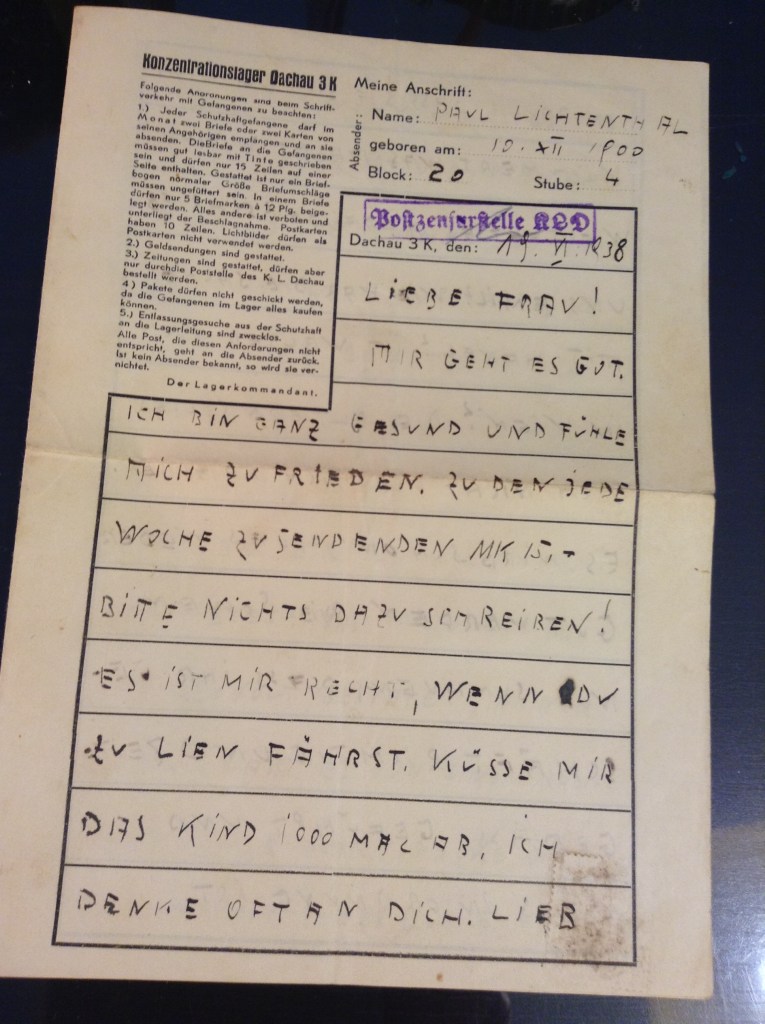 Konzentrationslager Dachau 3 K
Folgende Anordnungen sind beim Schrift-
verkehr mit Gefangenen zu beachten:
1.) Jeder Schutzhaftgefangene darf im
Monat zwei Briefe oder zwei Karten von
seinen Angehörigen empfangen und an sie
absenden. Die Briefe an die Gefangenen
müssen gut lesbar mit Tinte geschrieben
sein und dürfen nur 15 Zeilen auf einer
Seite enthalten. Gestattet ist nur ein Brief-
bogen normaler Größe. Briefumschläge
müssen ungefüttert sein. In einem Briefe
dürfen nur 5 Briefmarken à 12 Pfg. beige-
legt werden. Alles andere ist verboten und
unterliegt der Beschlagnahme. Postkarten
haben 10 Zeilen. Lichtbilder dürfen als
Postkarten nicht verwendet werden.
2.) Geldsendungen sind gestattet.
3.) Zeitungen sind gestattet, dürfen aber
nur durch die Poststelle des K. L. Dachau
bestellt werden.
4.) Pakete dürfen nicht geschickt werden,
da die Gefangenen im Lager alles kaufen
können.
5.) Entlassungsgesuche aus der Schutzhaft
an die Lagerleitung sind zwecklos.
Alle Post, die diesen Anforderungen nicht
entspricht, geht an die Absender zurück.
Ist kein Absender bekannt, so wird sie ver-
nichtet.
Der Lagerkommandant.
Meine Anschrift:
Absender:
Name: PAUL LICHTENTHAL
geboren am: 10. XII 1900
Block: 20 Stube: 4
Postzensurstelle KLD
Dachau 3 K, den: 19. VI. 1938
LIEBE FRAU!
MIR GEHT ES GUT.
ICH BIN GANZ GESUND UND FÜHLE
MICH ZUFRIEDEN. ZU DEN JEDE
WOCHE ZU SENDENDEN MK 15,-
BITTE NICHTS DAZU SCHREIBEN!
ES IST MIR RECHT, WENN DU
ZU LIEN FÄHRST. KÜSSE MIR
DAS KIND 1000 MAL AB, ICH
DENKE OFT AN DICH. LIEB